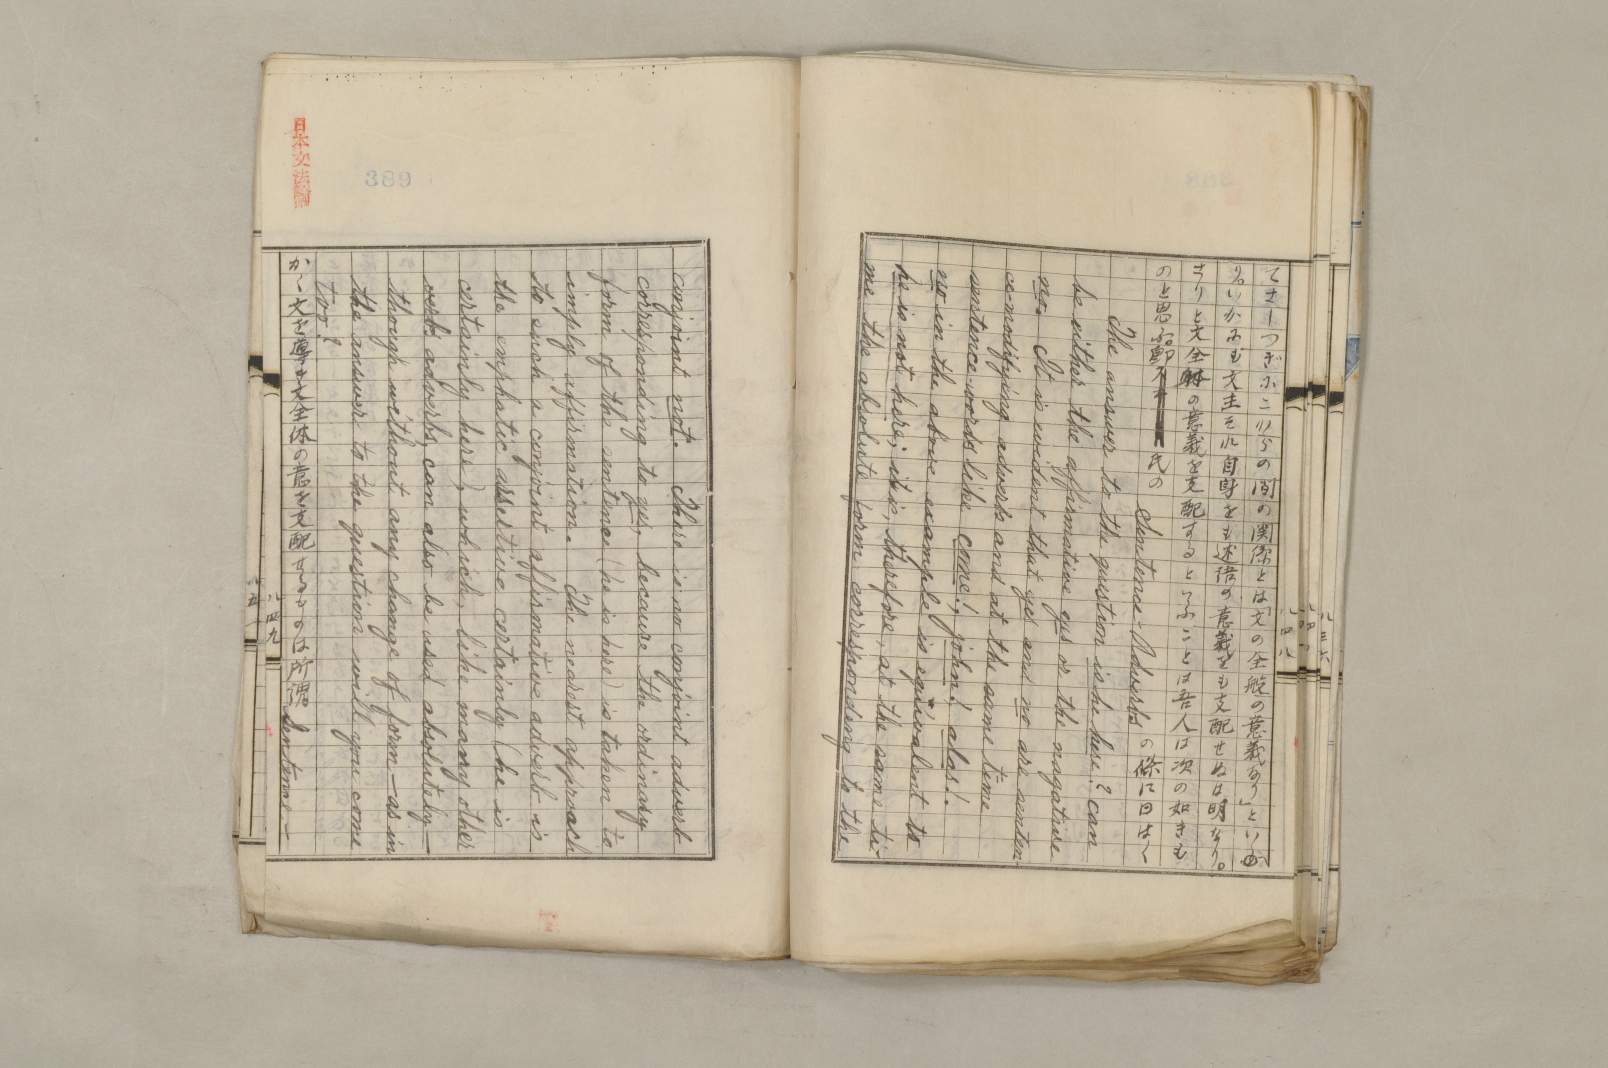 てさしつぎにこれらの間の関係とは「文の全般の意義なり」といふ
はいかにも文主それ自身をも述語の意義をも支配せぬは明なり。
さりと文全躰の意義を支配するといふことは吾人は次の如きも
のと思ふ即 氏の Sentence-Adverbs の條に曰はく
The answer to the question is he here? can
be either the affirmative yes or the nagative
no. It is evident that yes and no are senten-
ce-modifying adverbs and at the same time
sentence-words like come!, john! alas!.
no in the above example is equivalent to
he is not here; it is, therefore, at the same ti-
me the absolute form corresponding to the
八四八
日本文法
389
conjoint not. There is no conjoint adverb
corresponding to yes, because the ordinary
form of the sentence (he is here) is taken to
imply affirmation. The nearest approach
to such a conjoint affirmative adverb is
the emphatic assertive certainly (he is
certainly here), which, like many other
verb adverbs can also be used absolutely—
though without any change of form—as in
the answer to the question will you come
too?
かく文を導き文全体の意を支配せるものは所謂 Sentence—
八四九